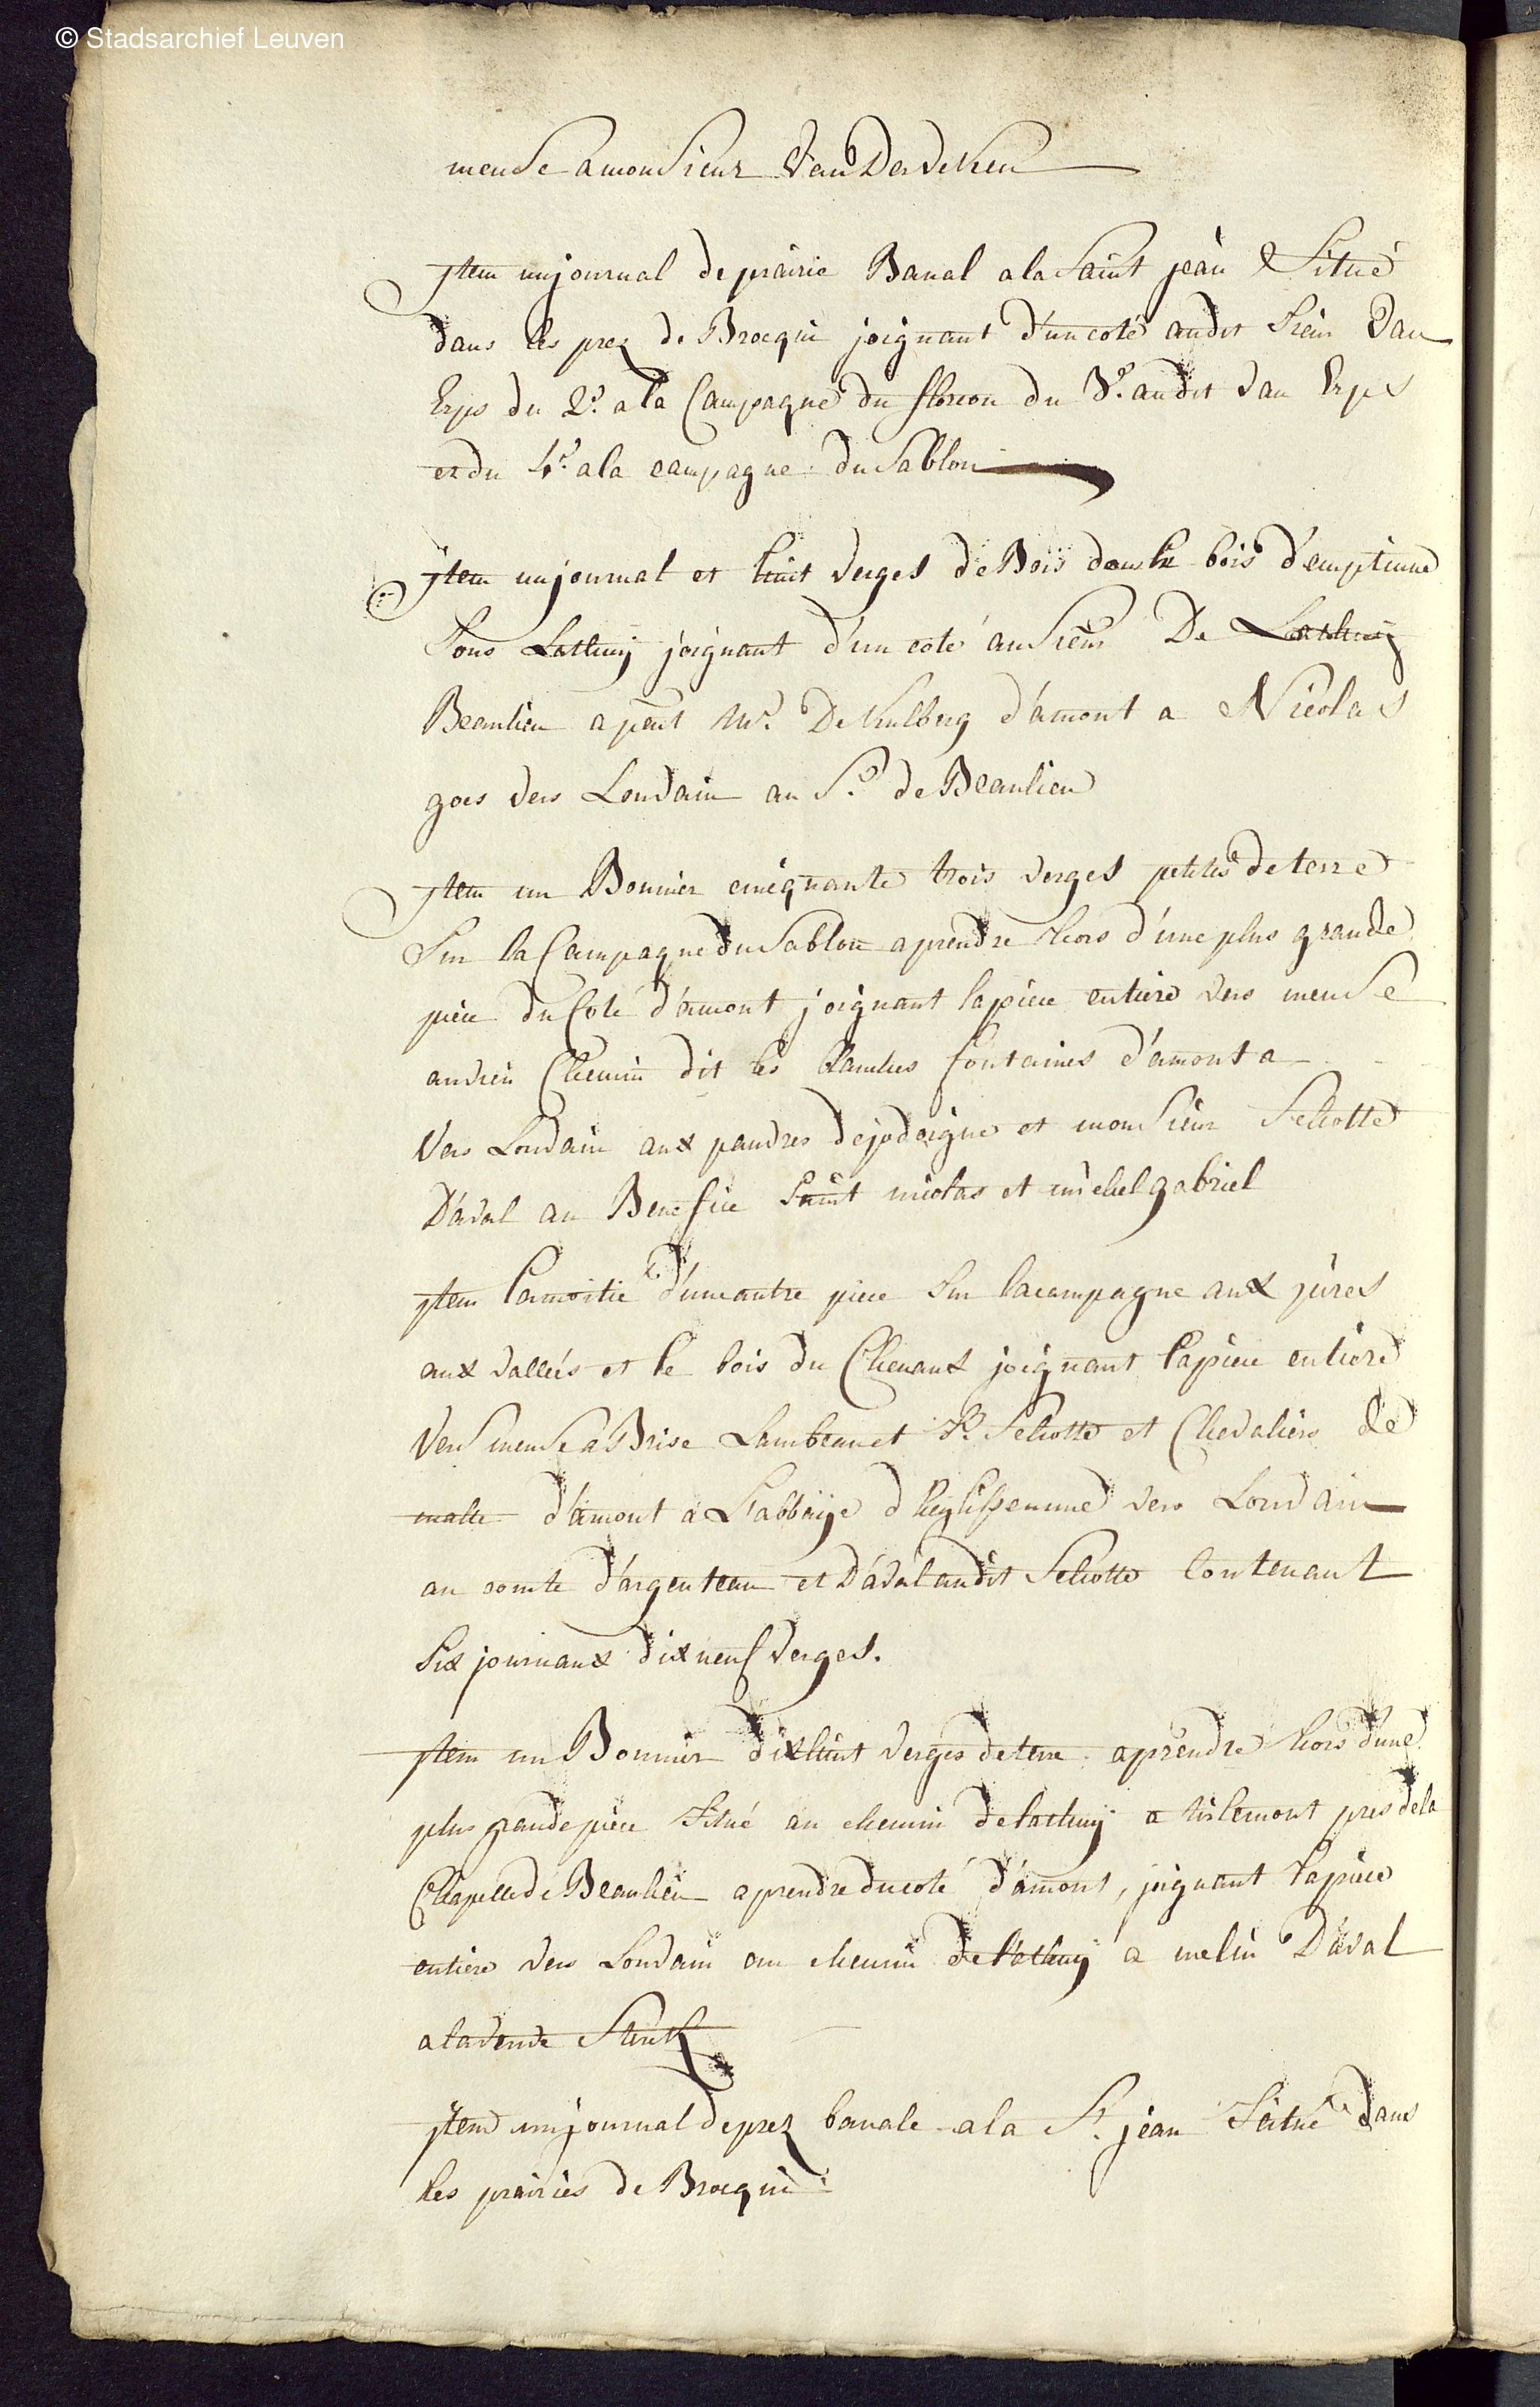 © Stadsarchief Leuven
meuse a monsieur Van Der Veken
jtem un journal de prairie Banal a la Saint jean & Situé
dans les prez de Brocqui joignant d'un coté audit Sieur Van
Erps du 2e. a la Campagne du floreon du 3e. audit van Erps
et du 4e. a la campagne du Sablon
jtem un journal et huit verges de Bois dans le bois d'emptinne
Sous Lathuy joignant d'un coté au Sieur De Lathuy
Beaulieu apent Mr. De d'amont a Nicolas
goes vers Louvain au Sr. de Beaulieu
jtem un Bonnier cinquante trois verges petites de terre
Sur la Campagne du Sablon aprendre hors d'une plus grande
piece du Coté d'amont joignant la piece entiere vers meuse
au vieu Chemin dit les fontaines d'amont a
vers Louvain aux pauvres de jodoigne et monsieur Seliotte
D'aval au Benefice Saint nicolas et michel gabriel
jtem la moitié d'une autre piece Sur la campagne aux
aux vallées et le bois du Chenaux joignant la piece entiere
vers meuse a Brise Lambeau et Sr. Seliotte et Chevaliers de
malte d'amont a L'abbaÿe d'heylissemme vers Louvain
au comte d'argenteau et D'aval audit Seliotte Contenant
Six journaux dix neuf verges.
jtem un Bonnier dixhuit verges de terre aprendre hors d'une
plus grande piece Situé au chemin de lathuÿ a tirlemont pres de la
Chapelle de Beaulieu aprendre du coté d'amont, joignant la piece
entiere vers Louvain au chemin de lathuy a melin D'aval
a la veuve
jtem un journal de prez banale a la St. jean Scitué dans
les prairies de Brocqui